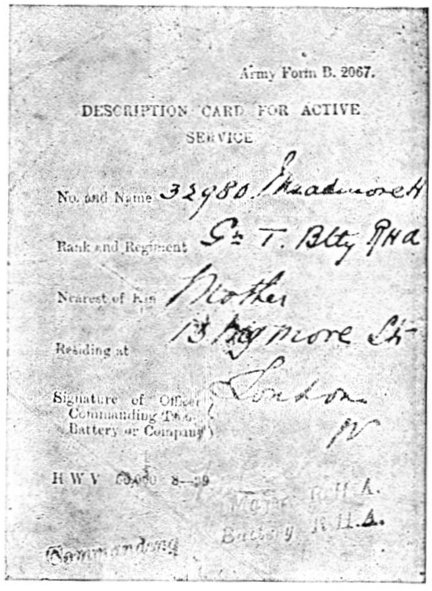 Army Form B. 2067.
DESCRIPTION CARD FOR ACTIVE
SERVICE
No. and Name 32980.
Rank and Regiment Gr T. Btty RHA
Nearest of Kin Mother
Residing at 13 More St
Signature of Officer London
Commanding
Battery or Company W
H W V 8—99
Major R.H.A.
Battery R.H.A.
Commanding